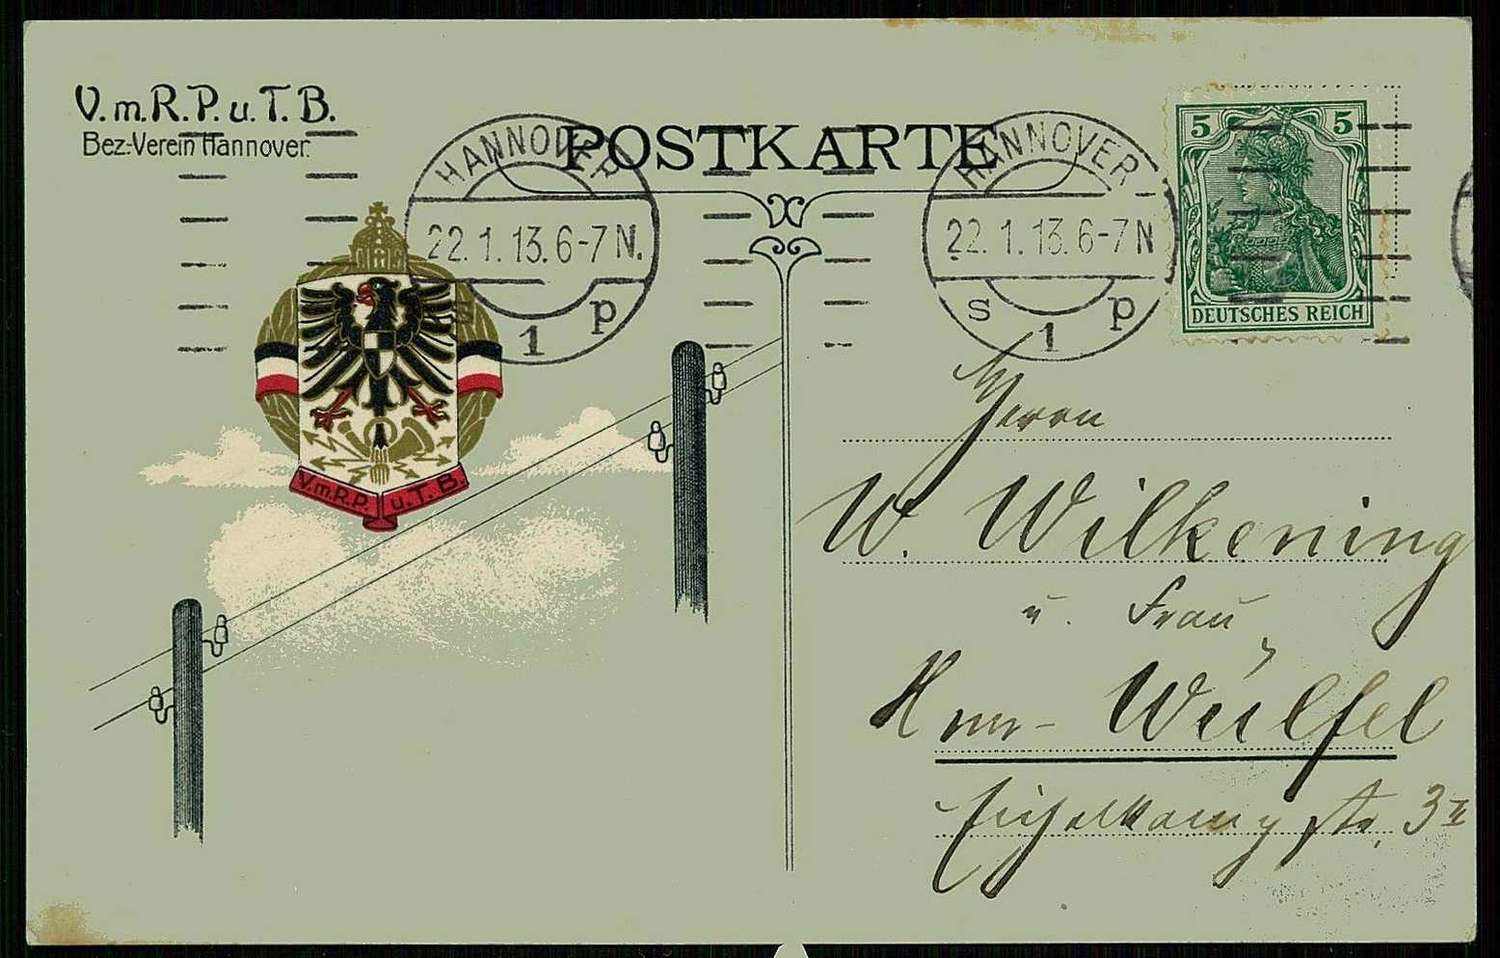 V.m.R.P.u.T.B.
Bez.-Verein Hannover.
POSTKARTE
HANNOVER
22.1.13.6-7N.
s 1 p
HANNOVER
22.1.13.6-7N
s 1 p
5 5
DEUTSCHES REICH
V.m.R.P. u.T.B.
Herrn
W. Wilkening
u. Frau
Hann- Wülfel
Str. 3 II